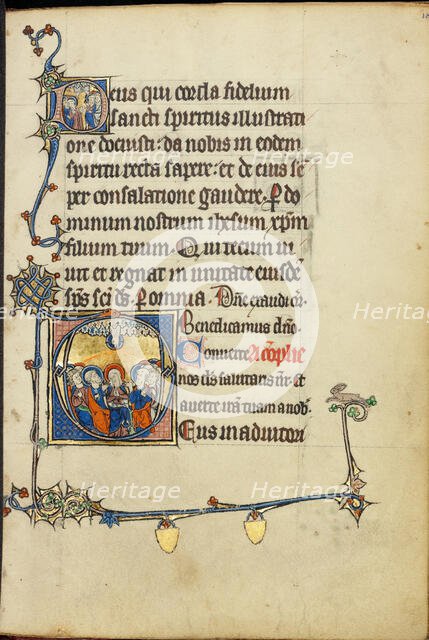 Deus qui corda fidelium
sancti spiritus illustrati
one docuisti: da nobis in eodem
spiritu recta sapere: et de eius se
per consolatione gaudere. P do
minum nostrum ihesum xpm
filium tuum. Qui tecum ui
uit et regnat in unitate eiusde
sps sci ds. P omnia. Dne exaudi or.
Benedicamus dno.
Conuerte A complie
nos ds salutaris nr. et
auerte iram tuam a nob.
Deus in adiutori
Heritage
Heritage
Heritage
Heritage
Heritage
Heritage